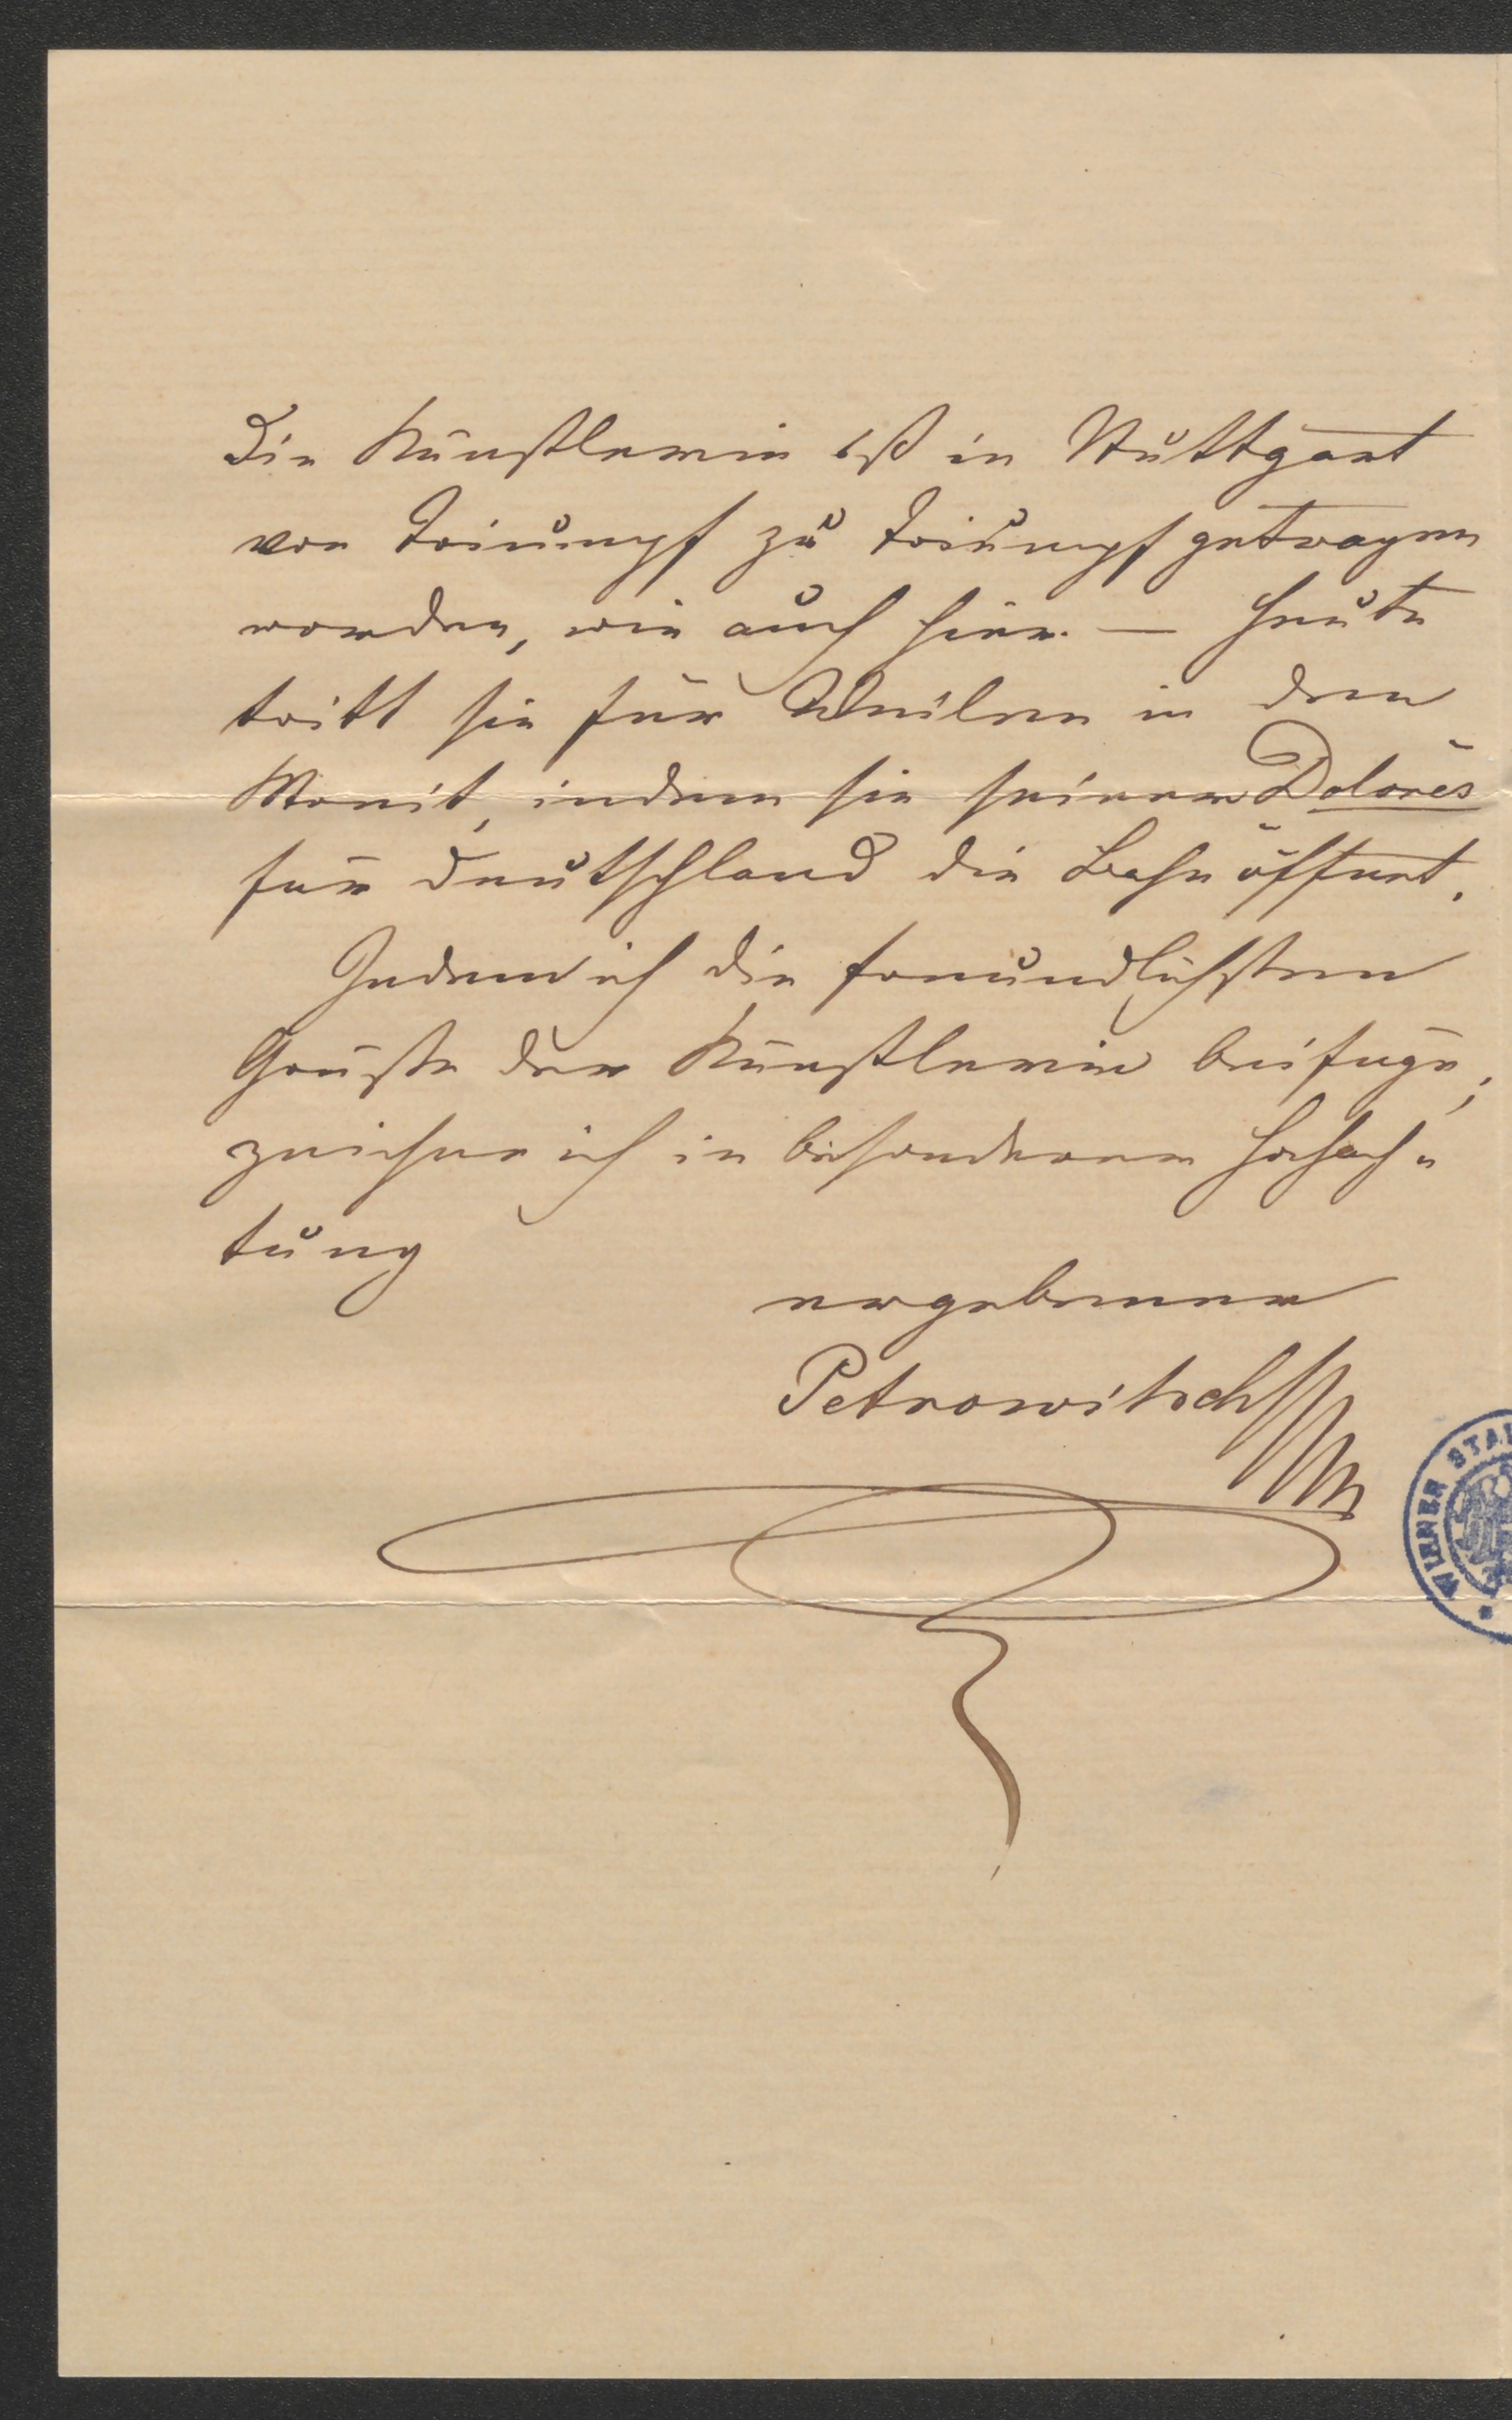 Die Künstlerin ist in Stuttgart
von Triumpf zu Triumpf getragen
worden, wie auch hier. — Heute
tritt sie für Weilen in den
indem sie seinem Dolores
für Deutschland die Bahn öffnet.
Indem ich die freundlichsten
Grüße der Künstlerin beifüge,
zeichne ich in besonderer Hochach-
tung
ergebener
Petrowitsch
WIENER STA